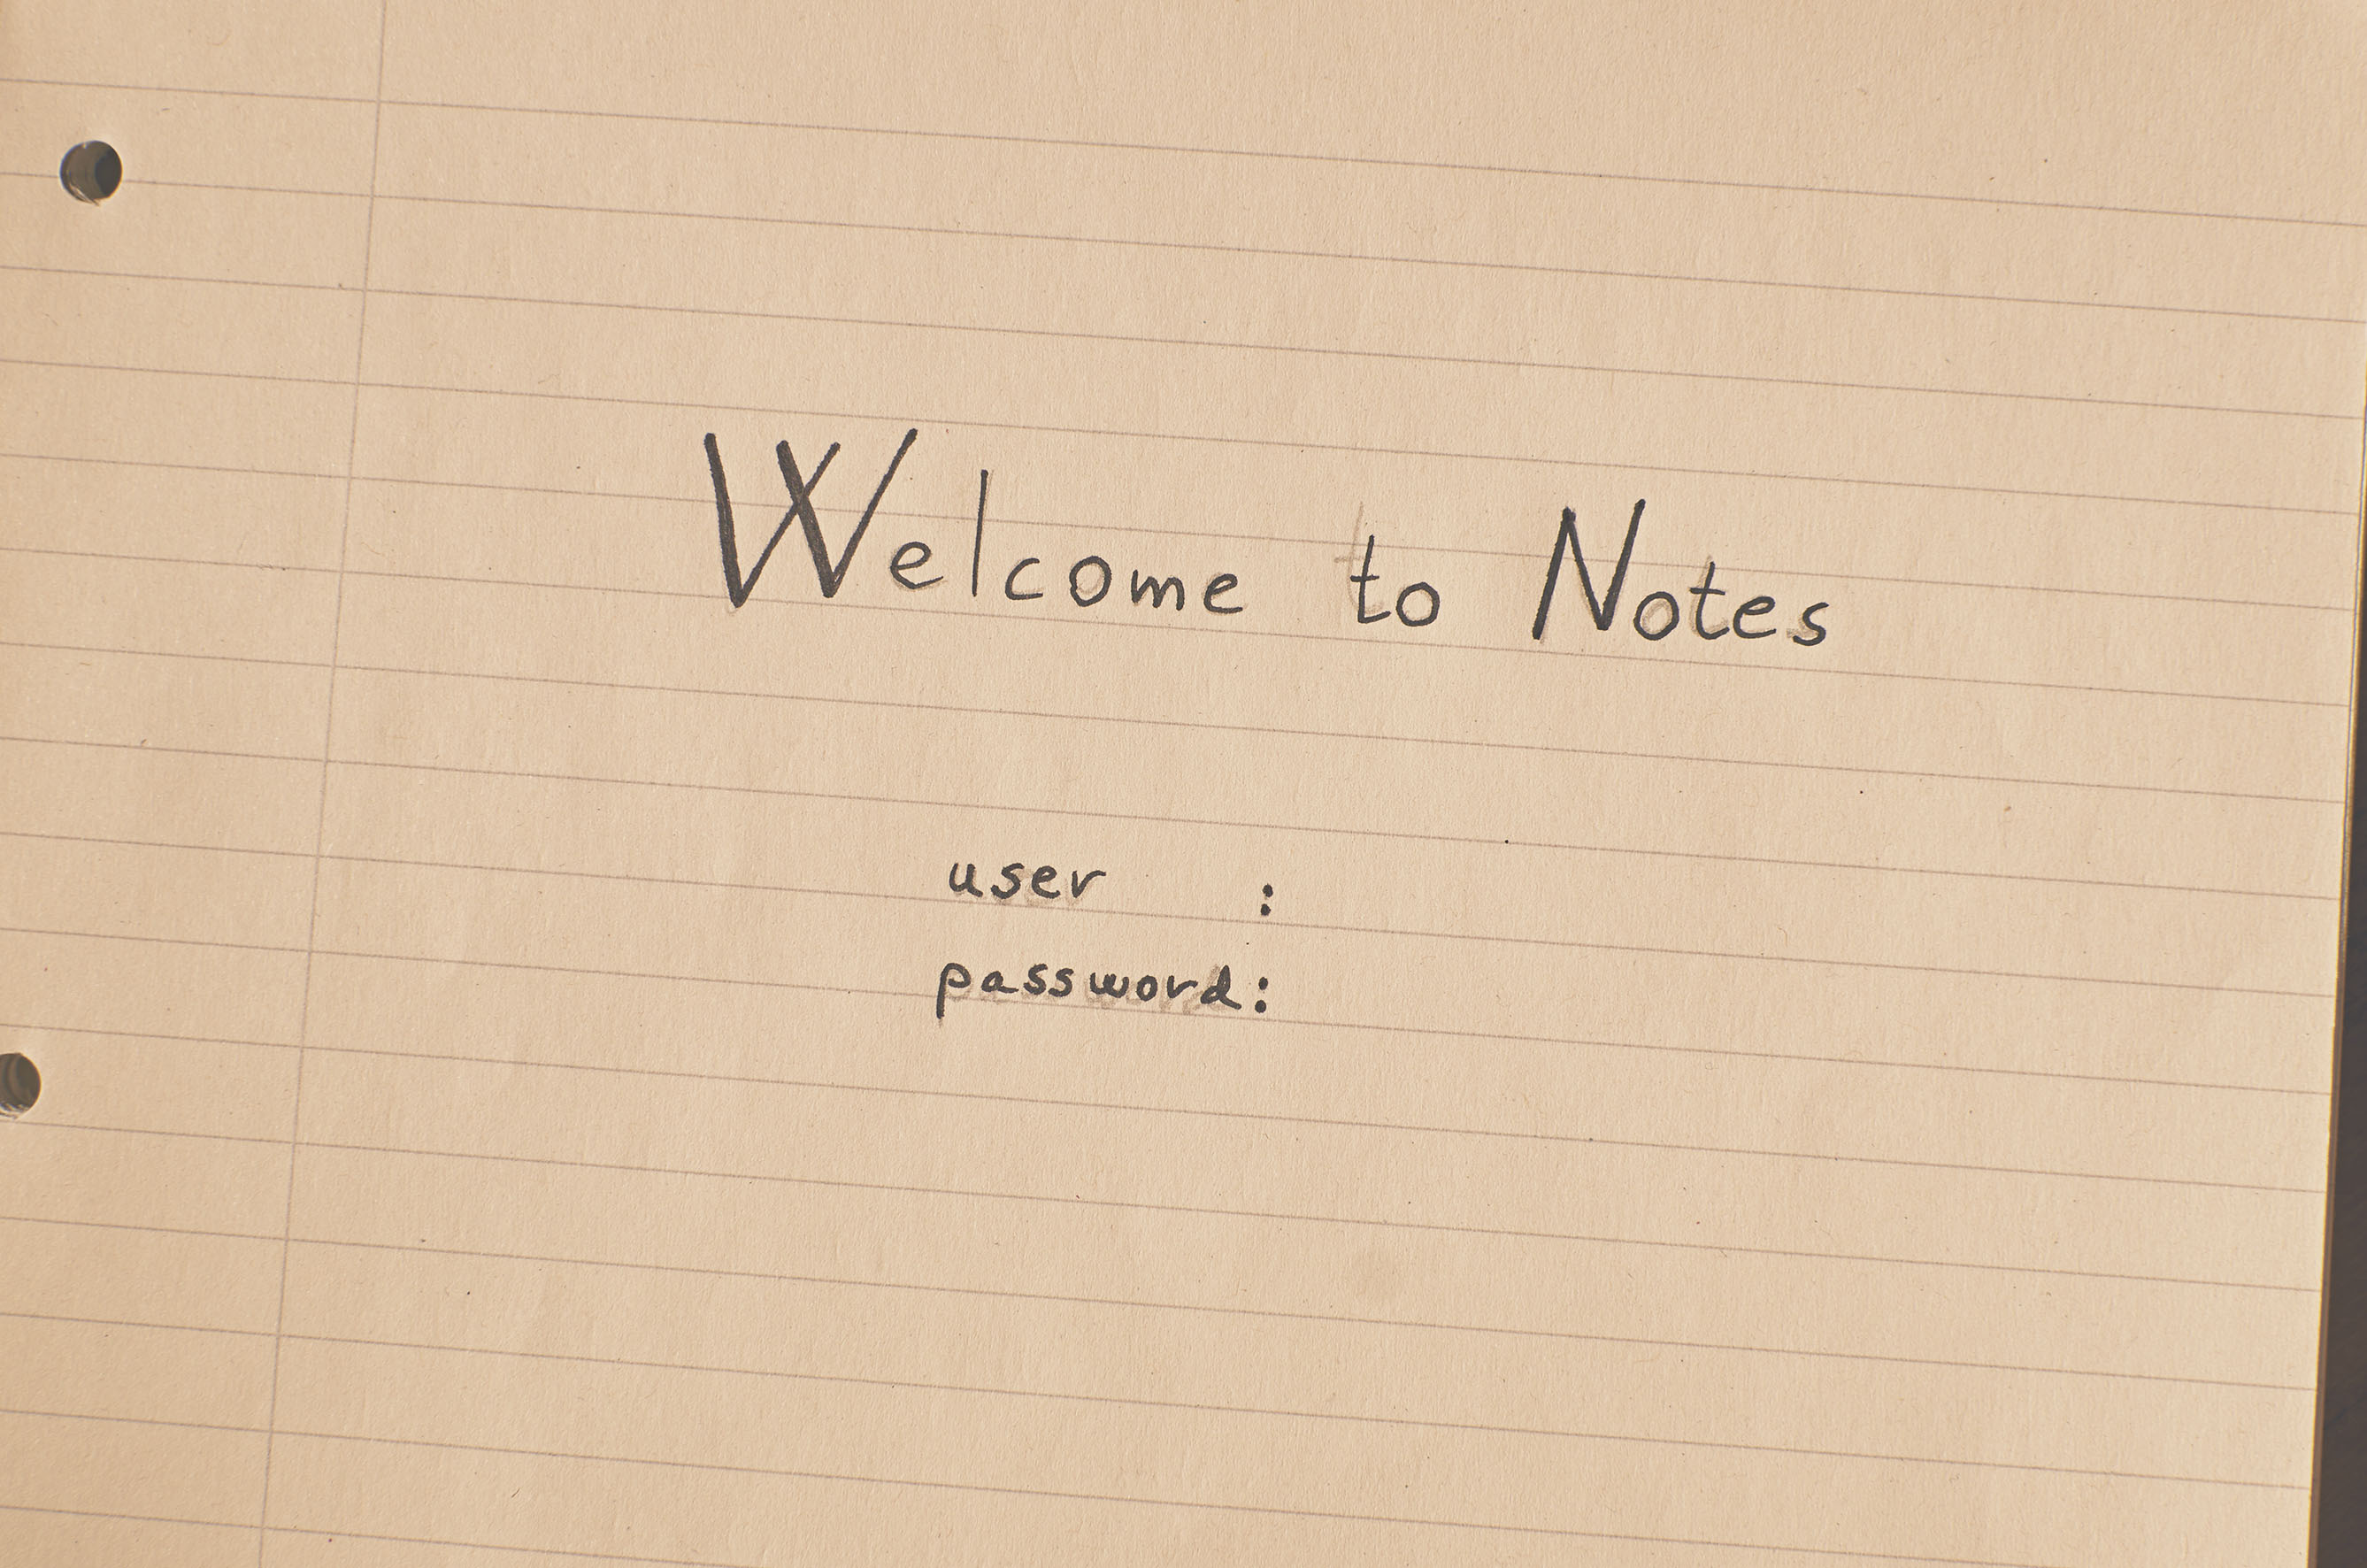 Welcome to Notes
user :
password: